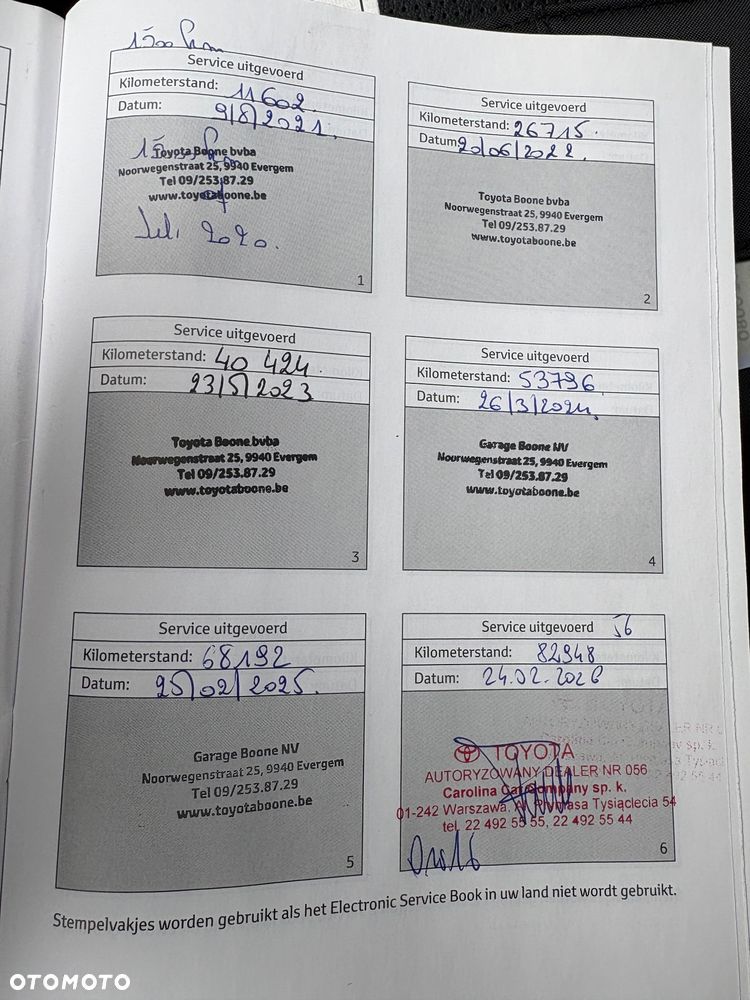 1500 km
Service uitgevoerd
Kilometerstand: 11602.
Datum: 9/8/2021.
Toyota Boone bvba
Noorwegenstraat 25, 9940 Evergem
Tel 09/253.87.29
www.toyotaboone.be
Juli 2020.
1
Service uitgevoerd
Kilometerstand: 26715.
Datum: 20/06/2022.
Toyota Boone bvba
Noorwegenstraat 25, 9940 Evergem
Tel 09/253.87.29
www.toyotaboone.be
2
Service uitgevoerd
Kilometerstand: 40 424.
Datum: 23/5/2023
Toyota Boone bvba
Noorwegenstraat 25, 9940 Evergem
Tel 09/253.87.29
www.toyotaboone.be
3
Service uitgevoerd
Kilometerstand: 53796
Datum: 26/3/2024.
Garage Boone NV
Noorwegenstraat 25, 9940 Evergem
Tel 09/253.87.29
www.toyotaboone.be
4
Service uitgevoerd
Kilometerstand: 68192
Datum: 25/02/2025.
Garage Boone NV
Noorwegenstraat 25, 9940 Evergem
Tel 09/253.87.29
www.toyotaboone.be
5
Service uitgevoerd
Kilometerstand: 82948
Datum: 24.02.2026
TOYOTA
AUTORYZOWANY DEALER NR 056
Carolina Car Company sp. k.
01-242 Warszawa. Al. Prymasa Tysiąclecia 54
tel. 22 492 55 55, 22 492 55 44
6
Stempelvakjes worden gebruikt als het Electronic Service Book in uw land niet wordt gebruikt.
OTOMOTO